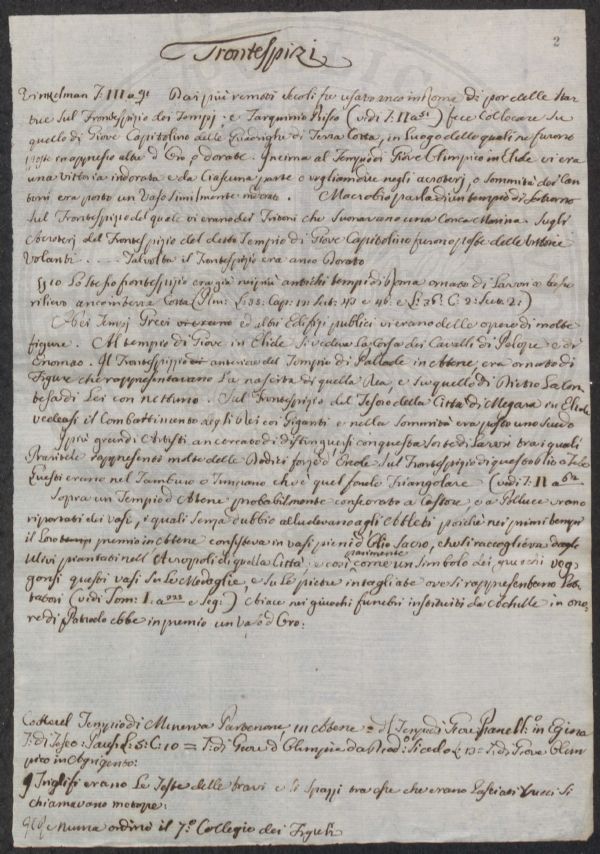 2
Frontespizi
Vinkelman T: III a 91 Dai più remoti secoli fu usato anco in Roma di por delle Sta
tue sul Frontespizio dei Tempj: e Tarquinio Prisco (vidi T: II a 51) fece collocare su
quello di Giove Capitolino delle Quadrighe di Terra Cotta, in luogo delle quali ne furono
poste in appresso altre d'Oro o dorate. In cima al Tempio di Giove Olimpico in Elide vi era
una vittoria indorata e da ciascuna parte o vogliam dire negli acroterj, o sommità dei Can
toni era posto un Vaso similmente indorato. Macrobio parla di un tempio di Saturno
sul Frontespizio del quale vi erano dei Tritoni che suonavano una Conca Marina. Sugli
Acroterj del Frontespizio del detto Tempio di Giove Capitolino furono poste delle Vittorie
volanti .... Talvolta il Frontespizio era anco Dorato
§§ 10 Lo stesso frontespizio era già nei più antichi tempi di Roma ornato di Lavori a basso
rilievo ancor in terra Cotta (Plin: L: 35: Cap: 12 Sect: 43 e 46. e L: 36: C: 2: Sect: 2:)
Ai dei Tempj Greci ed altri Edifizj publici vi erano delle opere di molte
figure. Al tempio di Giove in Elide si vedeva La Corsa dei Cavalli di Pelope e di
Enomao. Il Frontespizio anteriore del Tempio di Pallade in Atene, era ornato di
Figure che rappresentavano La nascita di questa Dea, e su quello di Dietro La Con
tesa di Lei con nettuno. Sul Frontespizio del Tesoro della Città di Megara in Elide
vedeasi il Combattimento degli Dei coi Giganti e nella Sommità era posto uno Scudo
I più grandi Artisti an cercato di distinguersi con questa sorte di Lavori tra i quali
Prasitele rappresentò molte delle Dodici forze d'Ercole sul Frontespizio di questo a Tebe
Questi erano nel Tamburo o Timpano che è quel fondo Triangolare (vidi: T: II a
Sopra un Tempio d'Atene probabilmente consacrato a Castore e a Polluce erano
riportati dei vasi, i quali senza dubbio alludevano agli Atleti poiché nei primi tempi
il Loro premio in Atene consisteva in vasi pieni d'Olio Sacro, che si raccoglieva dagli
Ulivi piantati nell'Acropoli di quella Città, e così come un simbolo dei giuochi veg,
parimente
gonsi questi vasi su Le Medaglie, e su Le pietre intagliate ove si rappresentano Lot,
tatori (vidi Tom: I. a e seg:) Ajace nei giuochi funebri instituiti da Achille in ono,
re di Patroclo ebbe in premio un vaso d'Oro:
Cotterel Tempio di Minerva Partenone in Atene = di Tempio di Giove in Egina
T: di Teseo: Paus: L: 5: C: 10 = T: di Giove d'Olimpia da Diod: Siculo L: 13 = T: di Giove Olim
pico in Agrigento:
Inglesi erano Le Teste delle travi e Li Spazzi tra esse che erano Lasciati Vacui si
chiamavano metope:
e Numa ordinò il 7.º Collegio dei Figuli